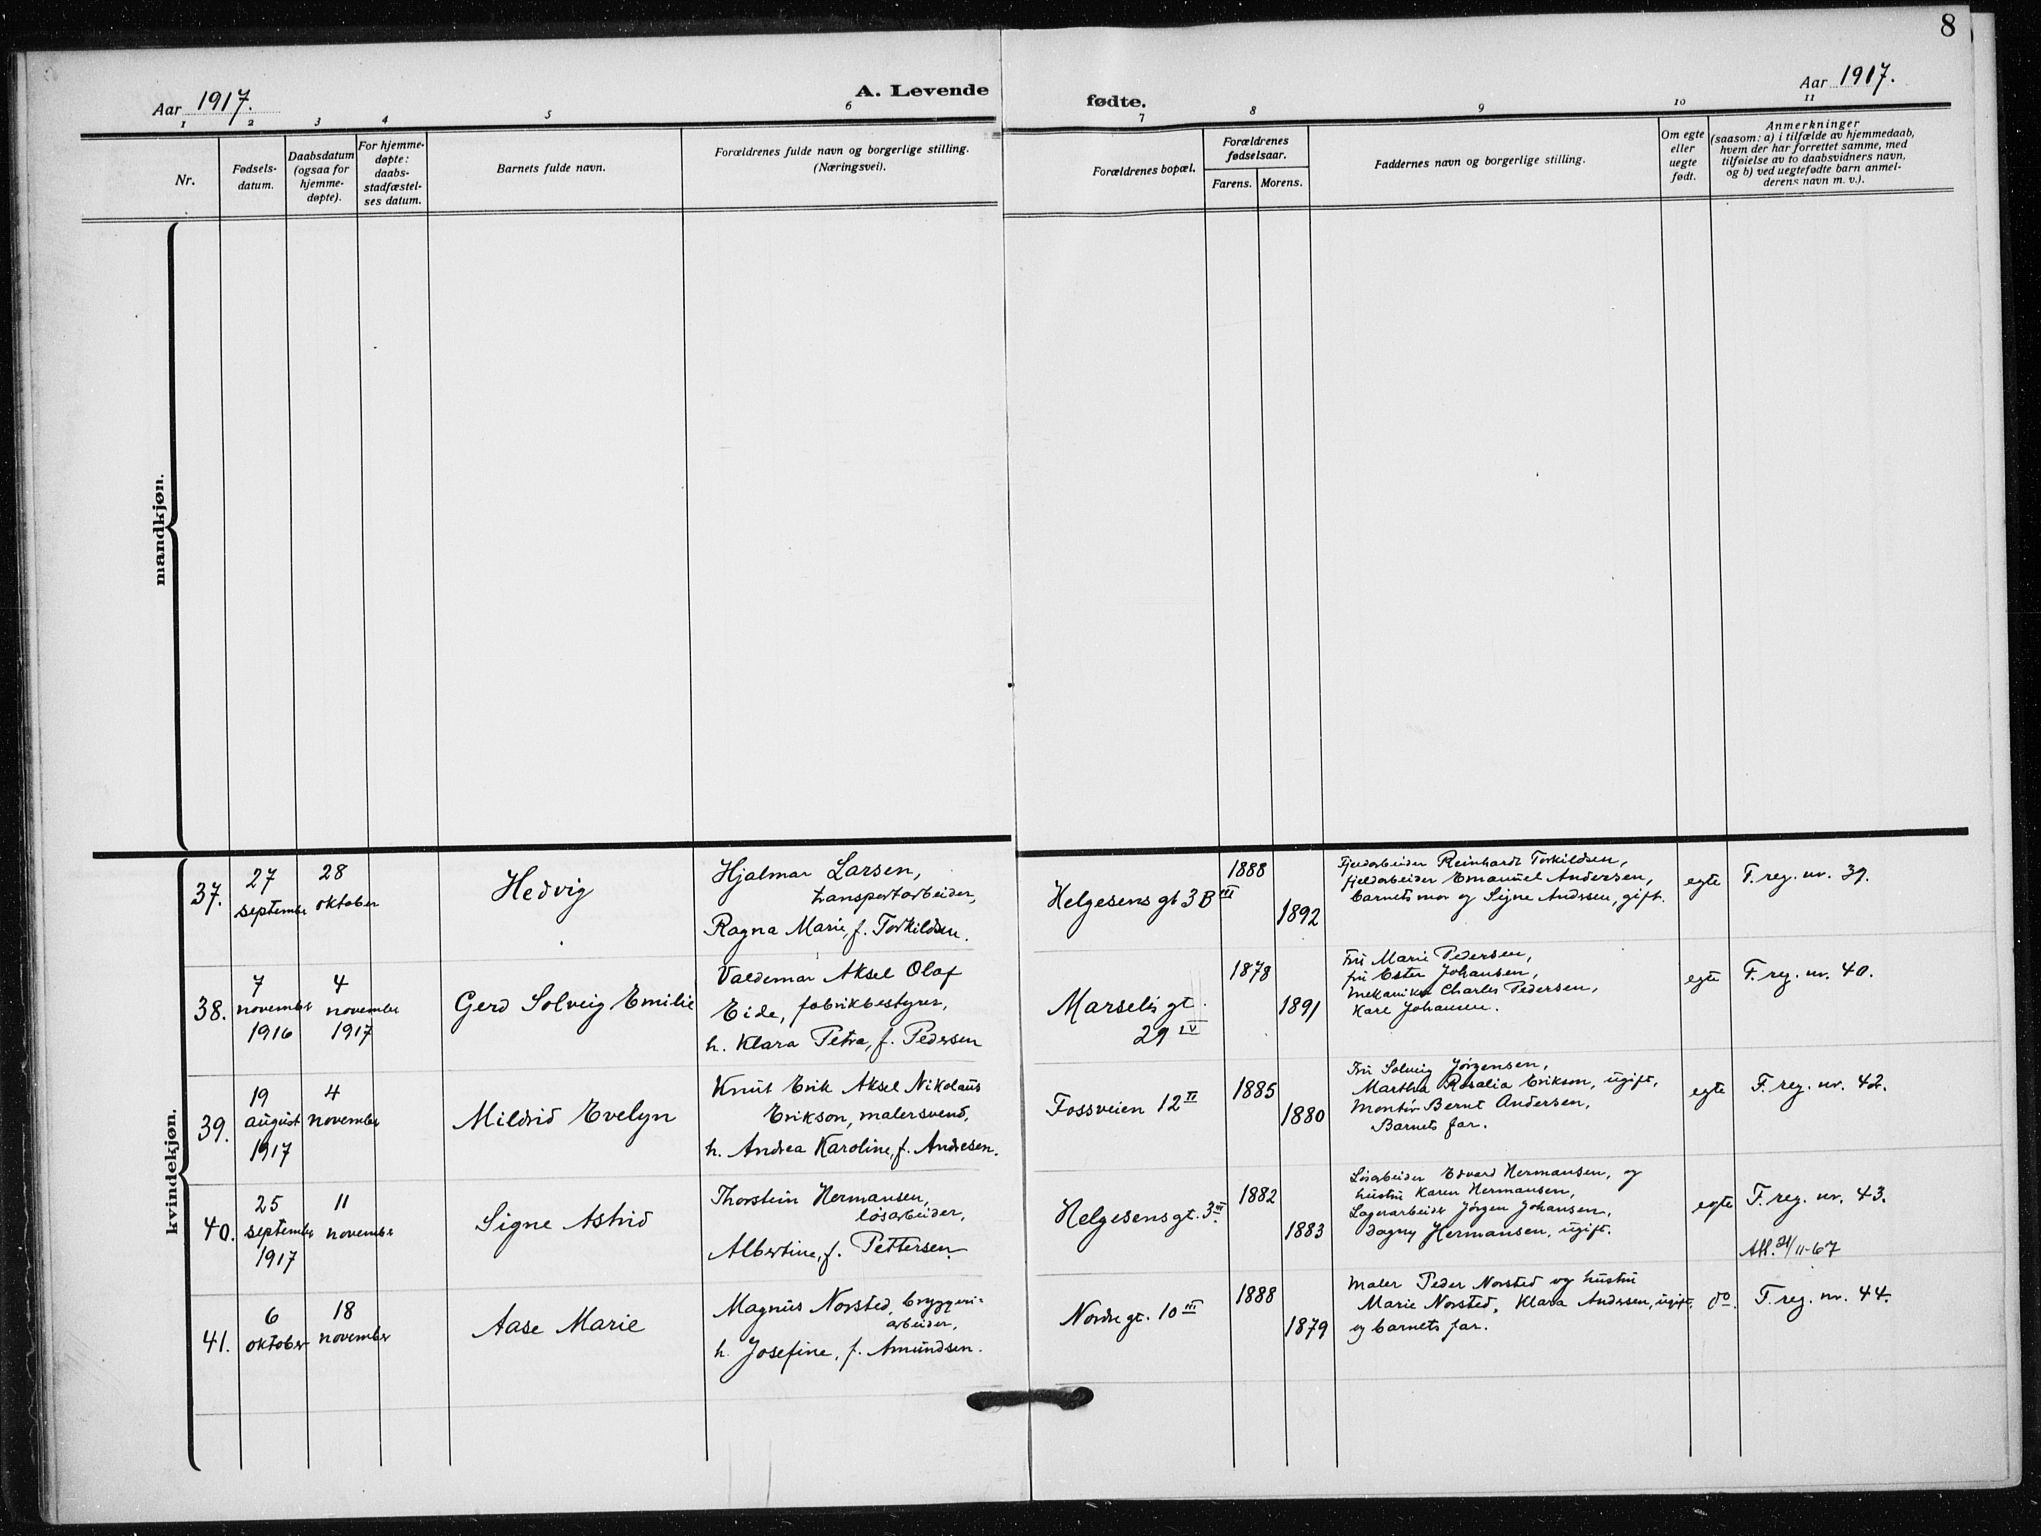 8
Aar 1917.
A. Levende
fødte.
Aar 1917.
1 2 3 4 5 6 7 8 9 10 11
Nr.
Fødsels-
datum.
Daabsdatum
(ogsaa for
hjemme-
døpte).
For hjemme-
døpte:
daabs-
stadfæstel-
ses datum.
Barnets fulde navn.
Forældrenes fulde navn og borgerlige stilling.
(Næringsvei).
Forældrenes bopæl.
Forældrenes
fødselsaar.
Farens. Morens.
Faddernes navn og borgerlige stilling.
Om egte
eller
uegte
født.
Anmerkninger
(saasom: a) i tilfælde av hjemmedaab,
hvem der har forrettet samme, med
tilføielse av to daabsvidners navn,
og b) ved uegtefødte barn anmel-
derens navn m. v.).
mandkjøn.
kvindekjøn.
37.
27
september
28
oktober
Hedvig
Hjalmar Larsen,
transportarbeider,
Ragna Marie, f. Torkildsen.
Helgesens gt 3 B III
1888
1892
Fjeldarbeider Reinhardt Torkildsen,
fjeldarbeider Emanuel Andersen,
barnets mor og Signe Andersen, gift.
egte
F. reg. nr. 39.
38.
7
november
1916
4
november
1917
Gerd Solveig Emilie
Valdemar Aksel Olaf
Eide, fabrikbestyrer,
h. Klara Petra, f. Pedersen
Marselis gt.
29 IV
1878
1891
Fru Marie Pedersen,
fru Ester Johansen,
mekaniker Charles Pedersen,
Kare Johansen.
egte
F. reg. nr. 40.
39.
19
august
1917
4
november
Mildrid Evelyn
Knut Erik Aksel Nikolaus
Erikson, malersvend,
h. Andrea Karoline, f. Andresen.
Fossveien 12 II
1885
1880
Fru Solveig Jørgensen,
Martha Rosalia Erikson, ugift,
Montør Bernt Andersen,
Barnets far.
egte
F. reg. nr. 42.
40.
25
september
1917
11
november
Signe Astrid
Thorstein Hermansen,
løsarbeider,
Albertine, f. Pettersen.
Helgesens gt. 3 III
1882
1883
Løsarbeider Edvard Hermansen, og
hustru Karen Hermansen,
Lagerarbeider Jørgen Johansen,
Dagny Hermansen, ugift.
egte
F. reg. nr. 43.
Att. 21/11-67
41.
6
oktober
18
november
Aase Marie
Magnus Norsted, bryggeri-
arbeider,
h. Josefine, f. Amundsen.
Nordre gt. 10 III
1888
1879
Maler Peder Norsted og hustru
Marie Norsted, Klara Andersen, ugift,
og barnets far.
do.
F. reg. nr. 44.